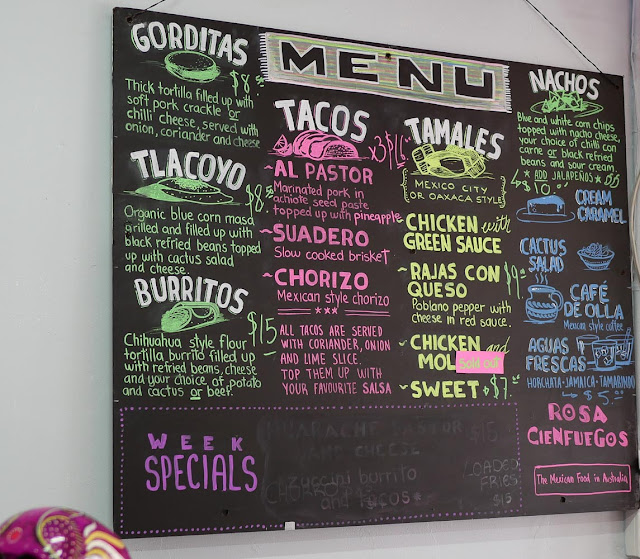 MENU
GORDITAS
$8.50
Thick tortilla filled up with
soft pork crackle or
chilli cheese, served with
onion, coriander and cheese
TLACOYO
$8.50
Organic blue corn masa
grilled and filled up with
black refried beans topped
up with cactus salad
and cheese.
BURRITOS
$15
Chihuahua style flour
tortilla burrito filled up
with refried beans, cheese
and your choice of potato
and cactus or beef.
TACOS
x3
~AL PASTOR
Marinated pork in
achiote seed paste
topped up with pineapple
~SUADERO
Slow cooked brisket
~CHORIZO
Mexican style chorizo
***
ALL TACOS ARE SERVED
WITH CORIANDER, ONION
AND LIME SLICE.
TOP THEM UP WITH
YOUR FAVOURITE SALSA
TAMALES
MEXICO CITY
OR OAXACA STYLE
CHICKEN with
GREEN SAUCE
~RAJAS CON
QUESO
$9
Poblano pepper with
cheese in red sauce.
~CHICKEN and
MOL
Sold out
~SWEET ~$7
NACHOS
Blue and white corn chips
topped with nacho cheese,
your choice of chilli con
carne or black refried
beans and sour cream.
* ADD JALAPEÑOS *
$10
CREAM
CARAMEL
CACTUS
SALAD
CAFÉ
DE OLLA
Mexican style coffee
AGUAS
FRESCAS
HORCHATA-JAMAICA-TAMARINDO
$5
ROSA
CIENFUEGOS
The Mexican Food in Australia
WEEK
SPECIALS
AND CHEESE
$15
zuccini burrito
and tacos*
LOADED
FRIES
$15